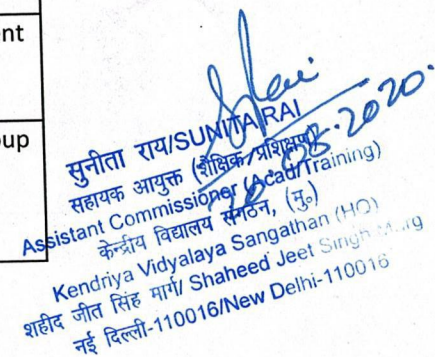 nt
up
सुनीता राय/SUNITA RAI
सहायक आयुक्त (शैक्षिक/प्रशिक्षण)
Assistant Commissioner (Acad/Training)
केन्द्रीय विद्यालय संगठन, (मु०)
Kendriya Vidyalaya Sangathan (HQ)
शहीद जीत सिंह मार्ग/ Shaheed Jeet Singh
नई दिल्ली-110016/New Delhi-110016